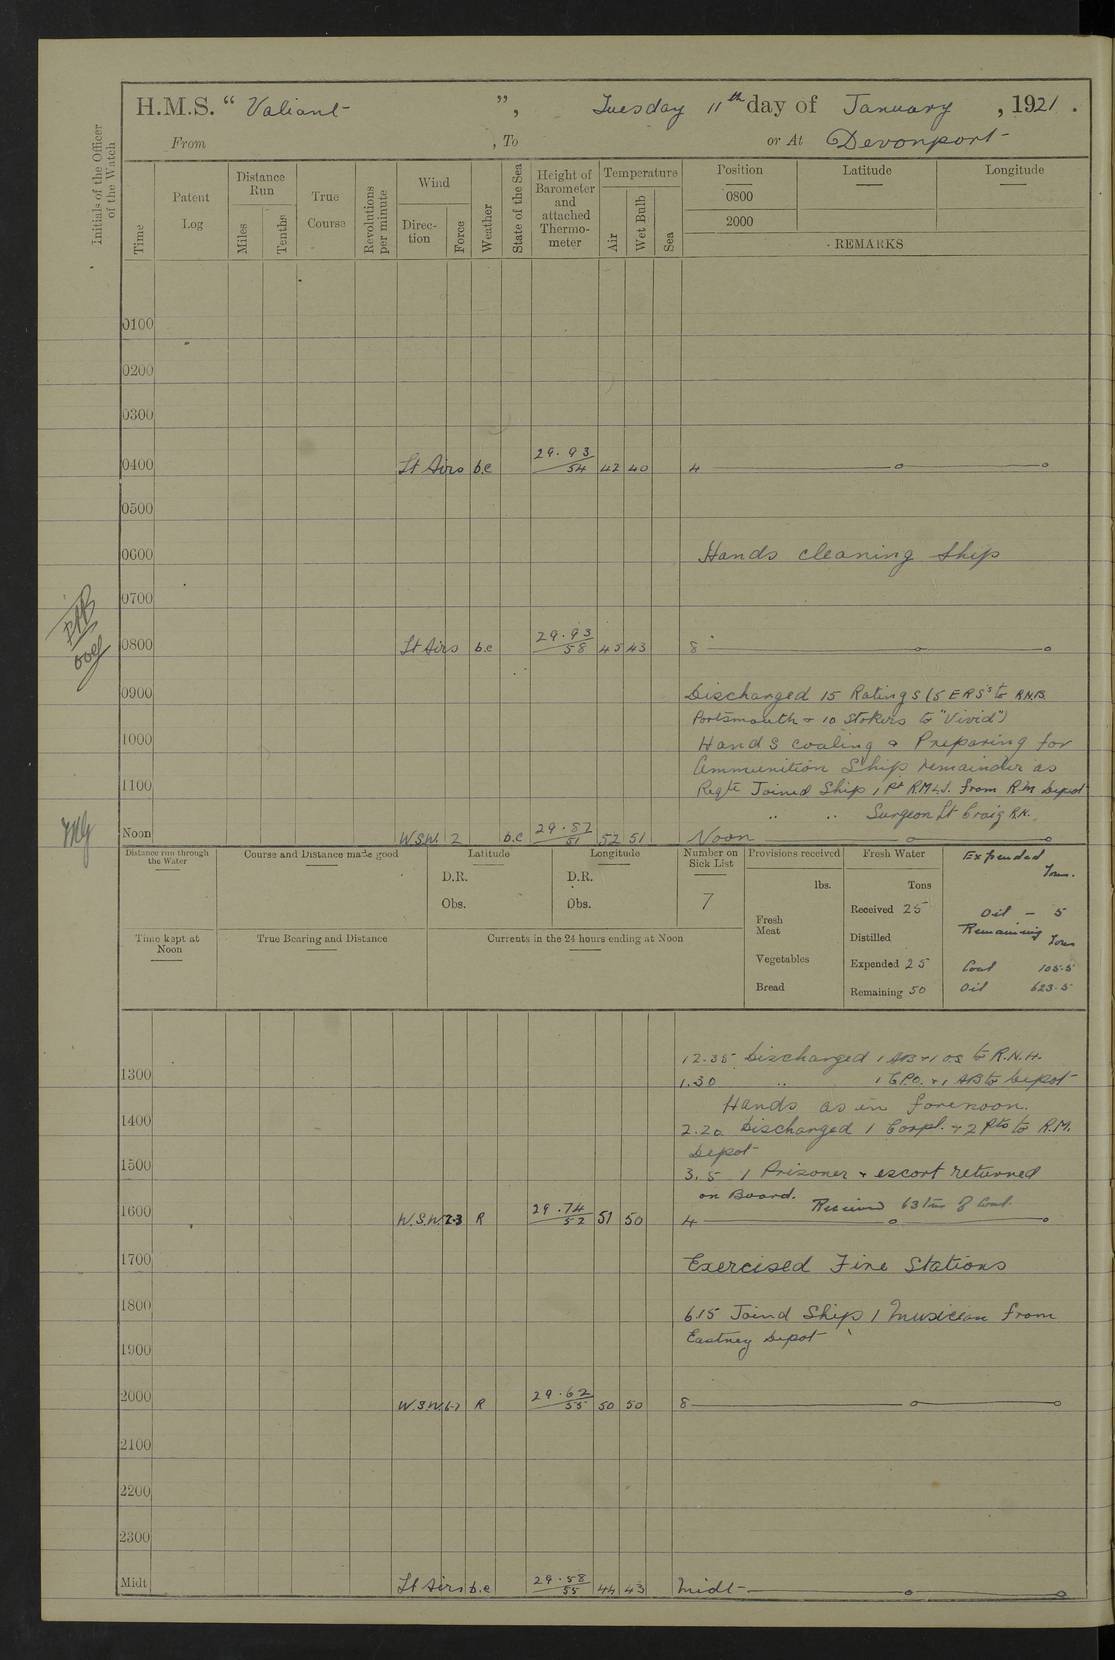 H.M.S. “ Valiant ”, Tuesday 11th day of January , 1921 .
From , To or At Devonport
Initials of the Officer of the Watch
Time
Patent Log
Distance Run
Miles
Tenths
True Course
Revolutions per minute
Wind
Direction
Force
Weather
State of the Sea
Height of Barometer and attached Thermometer
Temperature
Air
Wet Bulb
Sea
Position Latitude Longitude
0800
2000
REMARKS
0100
0200
0300
0400 Lt Airs b.c 29.93/54 42 40 4
0500
0600 Hands cleaning Ship
0700
0800 Lt Airs b.c 29.93/58 45 43 8
0900 Discharged 15 Ratings (5 ERS's to R.N.B.
Portsmouth + 10 Stokers to "Vivid")
1000 Hands coaling & Preparing for
Ammunition Ship remainder as
1100 Reqte Joined Ship 1 Pt R.M.L.I. from R.M Depot
" " Surgeon Lt Craig R.N.
Noon W.S.W. 2 b.c 29.87/51 52 51 Noon
Distance run through the Water
Course and Distance made good
Latitude
D.R.
Obs.
Longitude
D.R.
Obs.
Number on Sick List
7
Provisions received
lbs.
Fresh Meat
Vegetables
Bread
Fresh Water
Tons
Received 25
Distilled
Expended 25
Remaining 50
Expended
Tons.
Oil – 5
Remaining
Tons
Coal 105.5
Oil 623.5
Time kept at Noon
True Bearing and Distance
Currents in the 24 hours ending at Noon
12.35 Discharged 1 AB + 1 OS to R.N.H.
1300 1.30 " 1 C.P.O. + 1 AB to Depot
Hands as in forenoon.
1400 2.20 Discharged 1 Corpl. + 2 Pts to R.M.
Depot
1500 3.5 1 Prisoner + escort returned
on Board. Received 63 tons of Coal
1600 W.S.W. 2-3 R 29.74/52 51 50 4
1700 Exercised Fire Stations
1800 6.15 Joind Ship 1 Musician from
Eastney Depot
1900
2000 W.S.W. 6-7 R 29.62/55 50 50 8
2100
2200
2300
Midt Lt Airs b.c 29.58/55 44 43 Midt